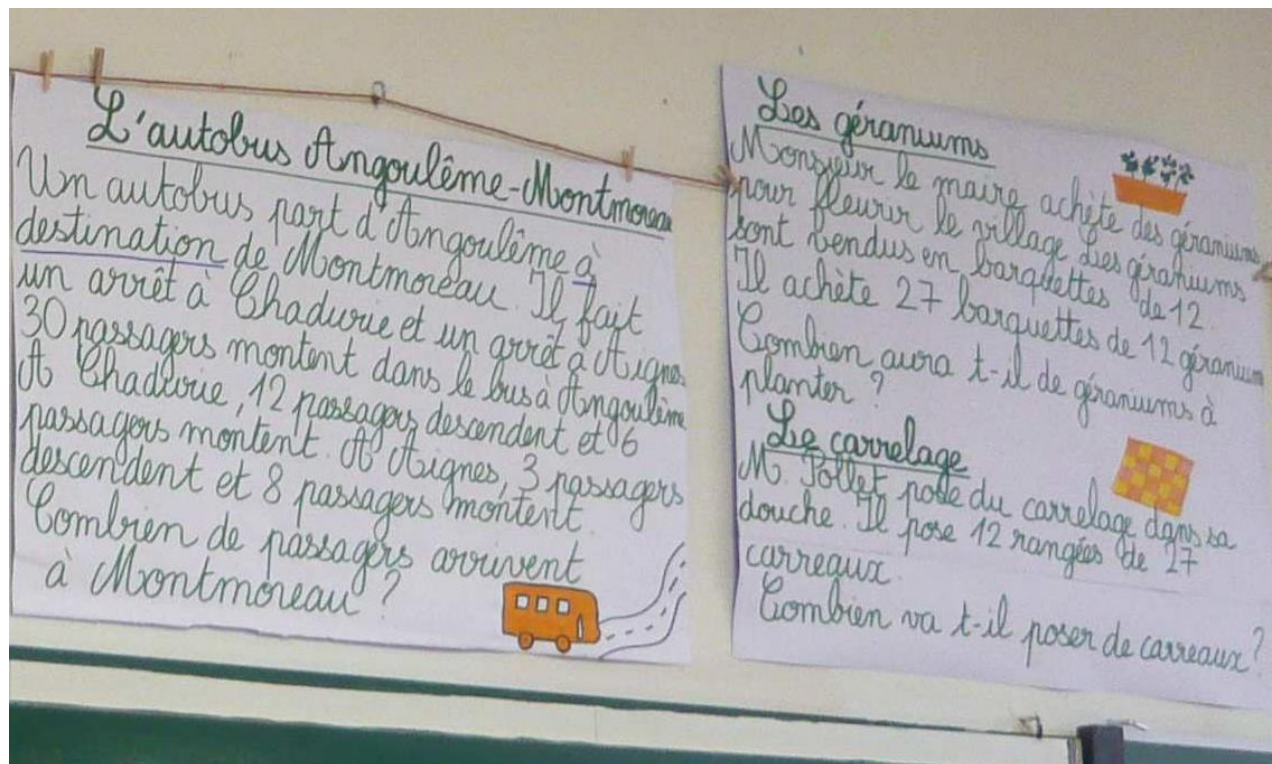 L'autobus Angoulême-Montmoreau
Un autobus part d'Angoulême à
destination de Montmoreau. Il fait
un arrêt à Chadurie et un arrêt à Aignes
30 passagers montent dans le bus à Angoulême
A Chadurie, 12 passagers descendent et 6
passagers montent. A Aignes, 3 passagers
descendent et 8 passagers montent.
Combien de passagers arrivent
à Montmoreau ?
Les géraniums
Monsieur le maire achète des géraniums
pour fleurir le village Les géraniums
sont vendus en barquettes de 12.
Il achète 27 barquettes de 12 géranium
Combien aura t-il de géraniums à
planter ?
Le carrelage
M. Pollet pose du carrelage dans sa
douche. Il pose 12 rangées de 27
carreaux.
Combien va t-il poser de carreaux ?